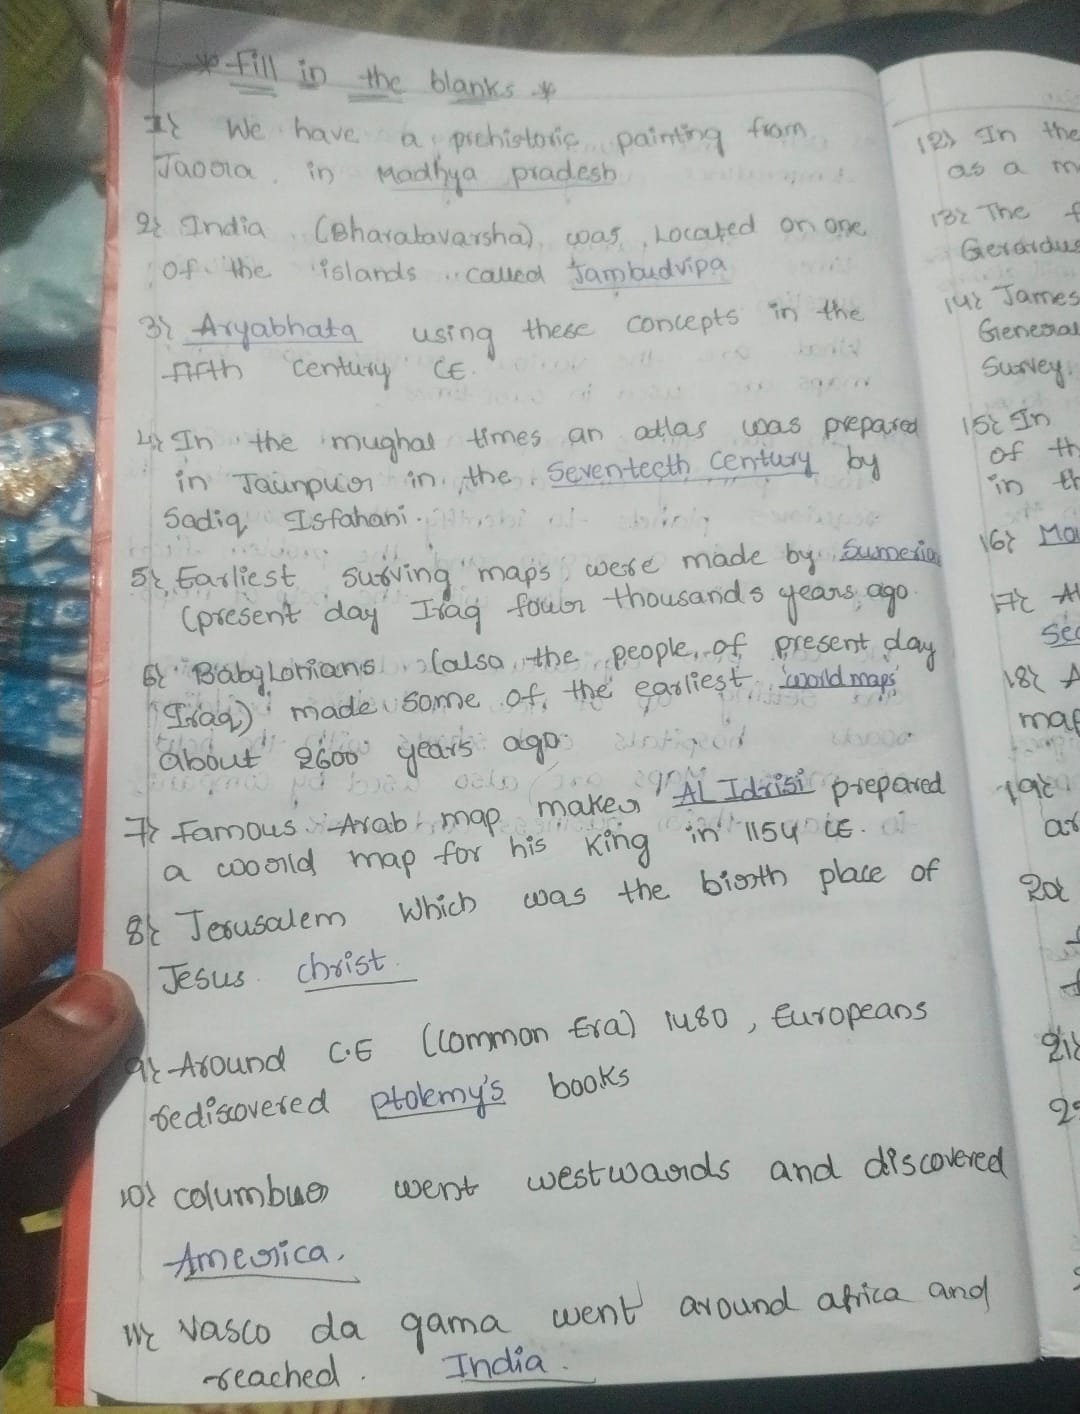 * Fill in the blanks *
1} We have a prehistoric painting from
Jaora in Madhya pradesh
2} India (Bharatavarsha) was Located on one
of the islands called Jambudvipa
3} Aryabhata using these concepts in the
fifth century CE.
4} In the mughal times an atlas was prepared
in Jaunpur in the Seventeeth century by
Sadiq Isfahani.
5} Earliest surving maps were made by Sumeria
(present day Iraq four thousands years ago
6} Babylonians (also the people of present day
Iraq) made some of the earliest 'world maps'
about 2600 years ago
7} famous Arab map maker AL Idrisi prepared
a woorld map for his King in 1154 CE.
8} Jerusalem Which was the birth place of
Jesus christ.
9} Around C.E (Common Era) 1480, Europeans
rediscovered Ptolemy's books
10} columbus went westwards and discovered
America.
11} Vasco da gama went around africa and
reached. India.
12} In the
as a m
13} The f
Gerardus
14} James
General
Survey
15} In
of th
in th
16} Ma
17}
Sec
18} A
map
19}
20}
21}